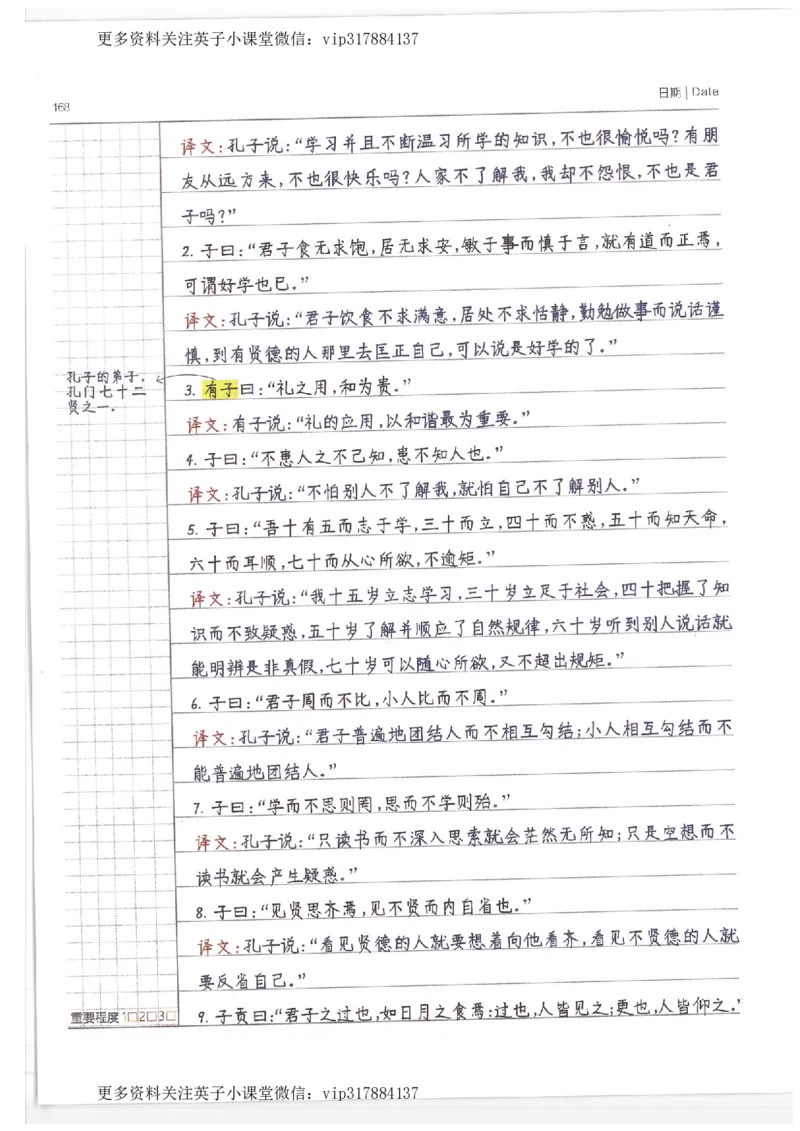 更多资料关注英子小课堂微信：vip317884137
日期 | Date
168
译文：孔子说：“学习并且不断温习所学的知识，不也很愉悦吗？有朋
友从远方来，不也很快乐吗？人家不了解我，我却不怨恨，不也是君
子吗？”
2. 子曰：“君子食无求饱，居无求安，敏于事而慎于言，就有道而正焉，
可谓好学也已。”
译文：孔子说：“君子饮食不求满意，居处不求恬静，勤勉做事而说话谨
慎，到有贤德的人那里去匡正自己，可以说是好学的了。”
孔子的弟子，
孔门七十二
贤之一。
3. 有子曰：“礼之用，和为贵。”
译文：有子说：“礼的应用，以和谐最为重要。”
4. 子曰：“不患人之不己知，患不知人也。”
译文：孔子说：“不怕别人不了解我，就怕自己不了解别人。”
5. 子曰：“吾十有五而志于学，三十而立，四十而不惑，五十而知天命，
六十而耳顺，七十而从心所欲，不逾矩。”
译文：孔子说：“我十五岁立志学习，三十岁立足于社会，四十把握了知
识而不致疑惑，五十岁了解并顺应了自然规律，六十岁听到别人说话就
能明辨是非真假，七十岁可以随心所欲，又不超出规矩。”
6. 子曰：“君子周而不比，小人比而不周。”
译文：孔子说：“君子普遍地团结人而不相互勾结；小人相互勾结而不
能普遍地团结人。”
7. 子曰：“学而不思则罔，思而不学则殆。”
译文：孔子说：“只读书而不深入思索就会茫然无所知；只是空想而不
读书就会产生疑惑。”
8. 子曰：“见贤思齐焉，见不贤而内自省也。”
译文：孔子说：“看见贤德的人就要想着向他看齐，看见不贤德的人就
要反省自己。”
重要程度 1□2□3□
9. 子贡曰：“君子之过也，如日月之食焉：过也，人皆见之；更也，人皆仰之。”
更多资料关注英子小课堂微信：vip317884137